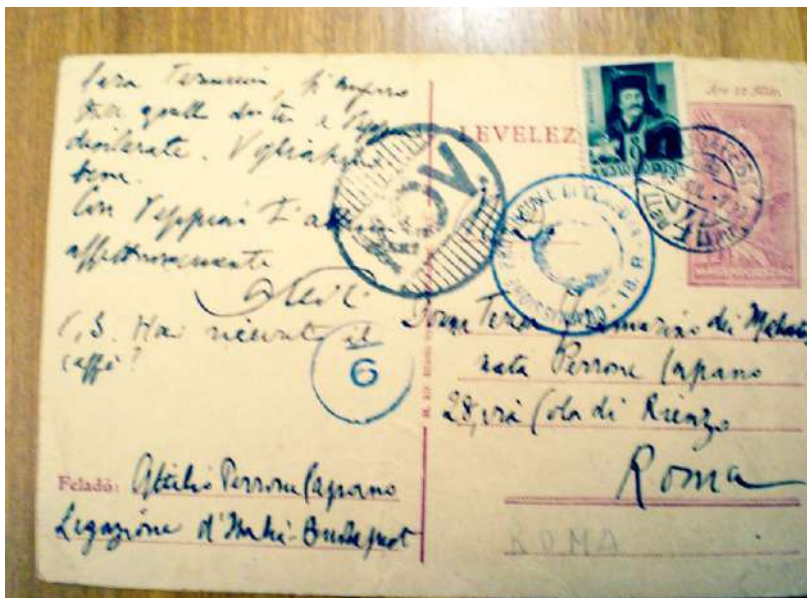 Cara Teresina, Ti auguro
che quello che tu e Peppino
desiderate. Vogliatevi
bene.
Con Peppino T'abbraccio
affettuosamente
Attilio
P.S. Hai ricevuto il
caffè?
Feladó: Attilio Perrone Capano
Legazione d'Italia - Budapest
LEVELEZ
Ára 10 fillér.
MAGYARORSZÁG
OV.
18. R
6
Donna Teresa dei
nata Perrone Capano
28, via Cola di Rienzo
Roma
ROMA